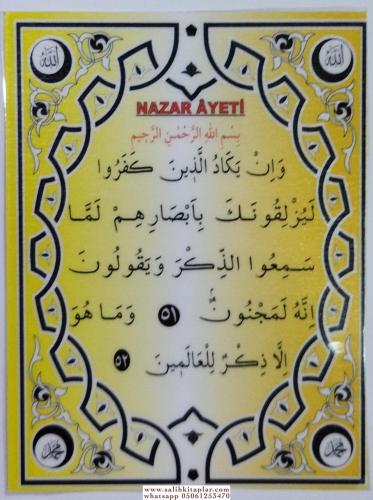 الله
الله
NAZAR ÂYETİ
بِسْمِ اللهِ الرَّحْمٰنِ الرَّحِيمِ
وَاِنْ يَكَادُ الَّذ۪ينَ كَفَرُوا
لَيُزْلِقُونَكَ بِاَبْصَارِهِمْ لَمَّا
سَمِعُوا الذِّكْرَ وَيَقُولُونَ
اِنَّهُ لَمَجْنُونٌۢ ٥١ وَمَا هُوَ
اِلَّا ذِكْرٌ لِلْعَالَم۪ينَ ٥٢
محمد
محمد
www.salihkitaplar.com
whatsapp 05061253470